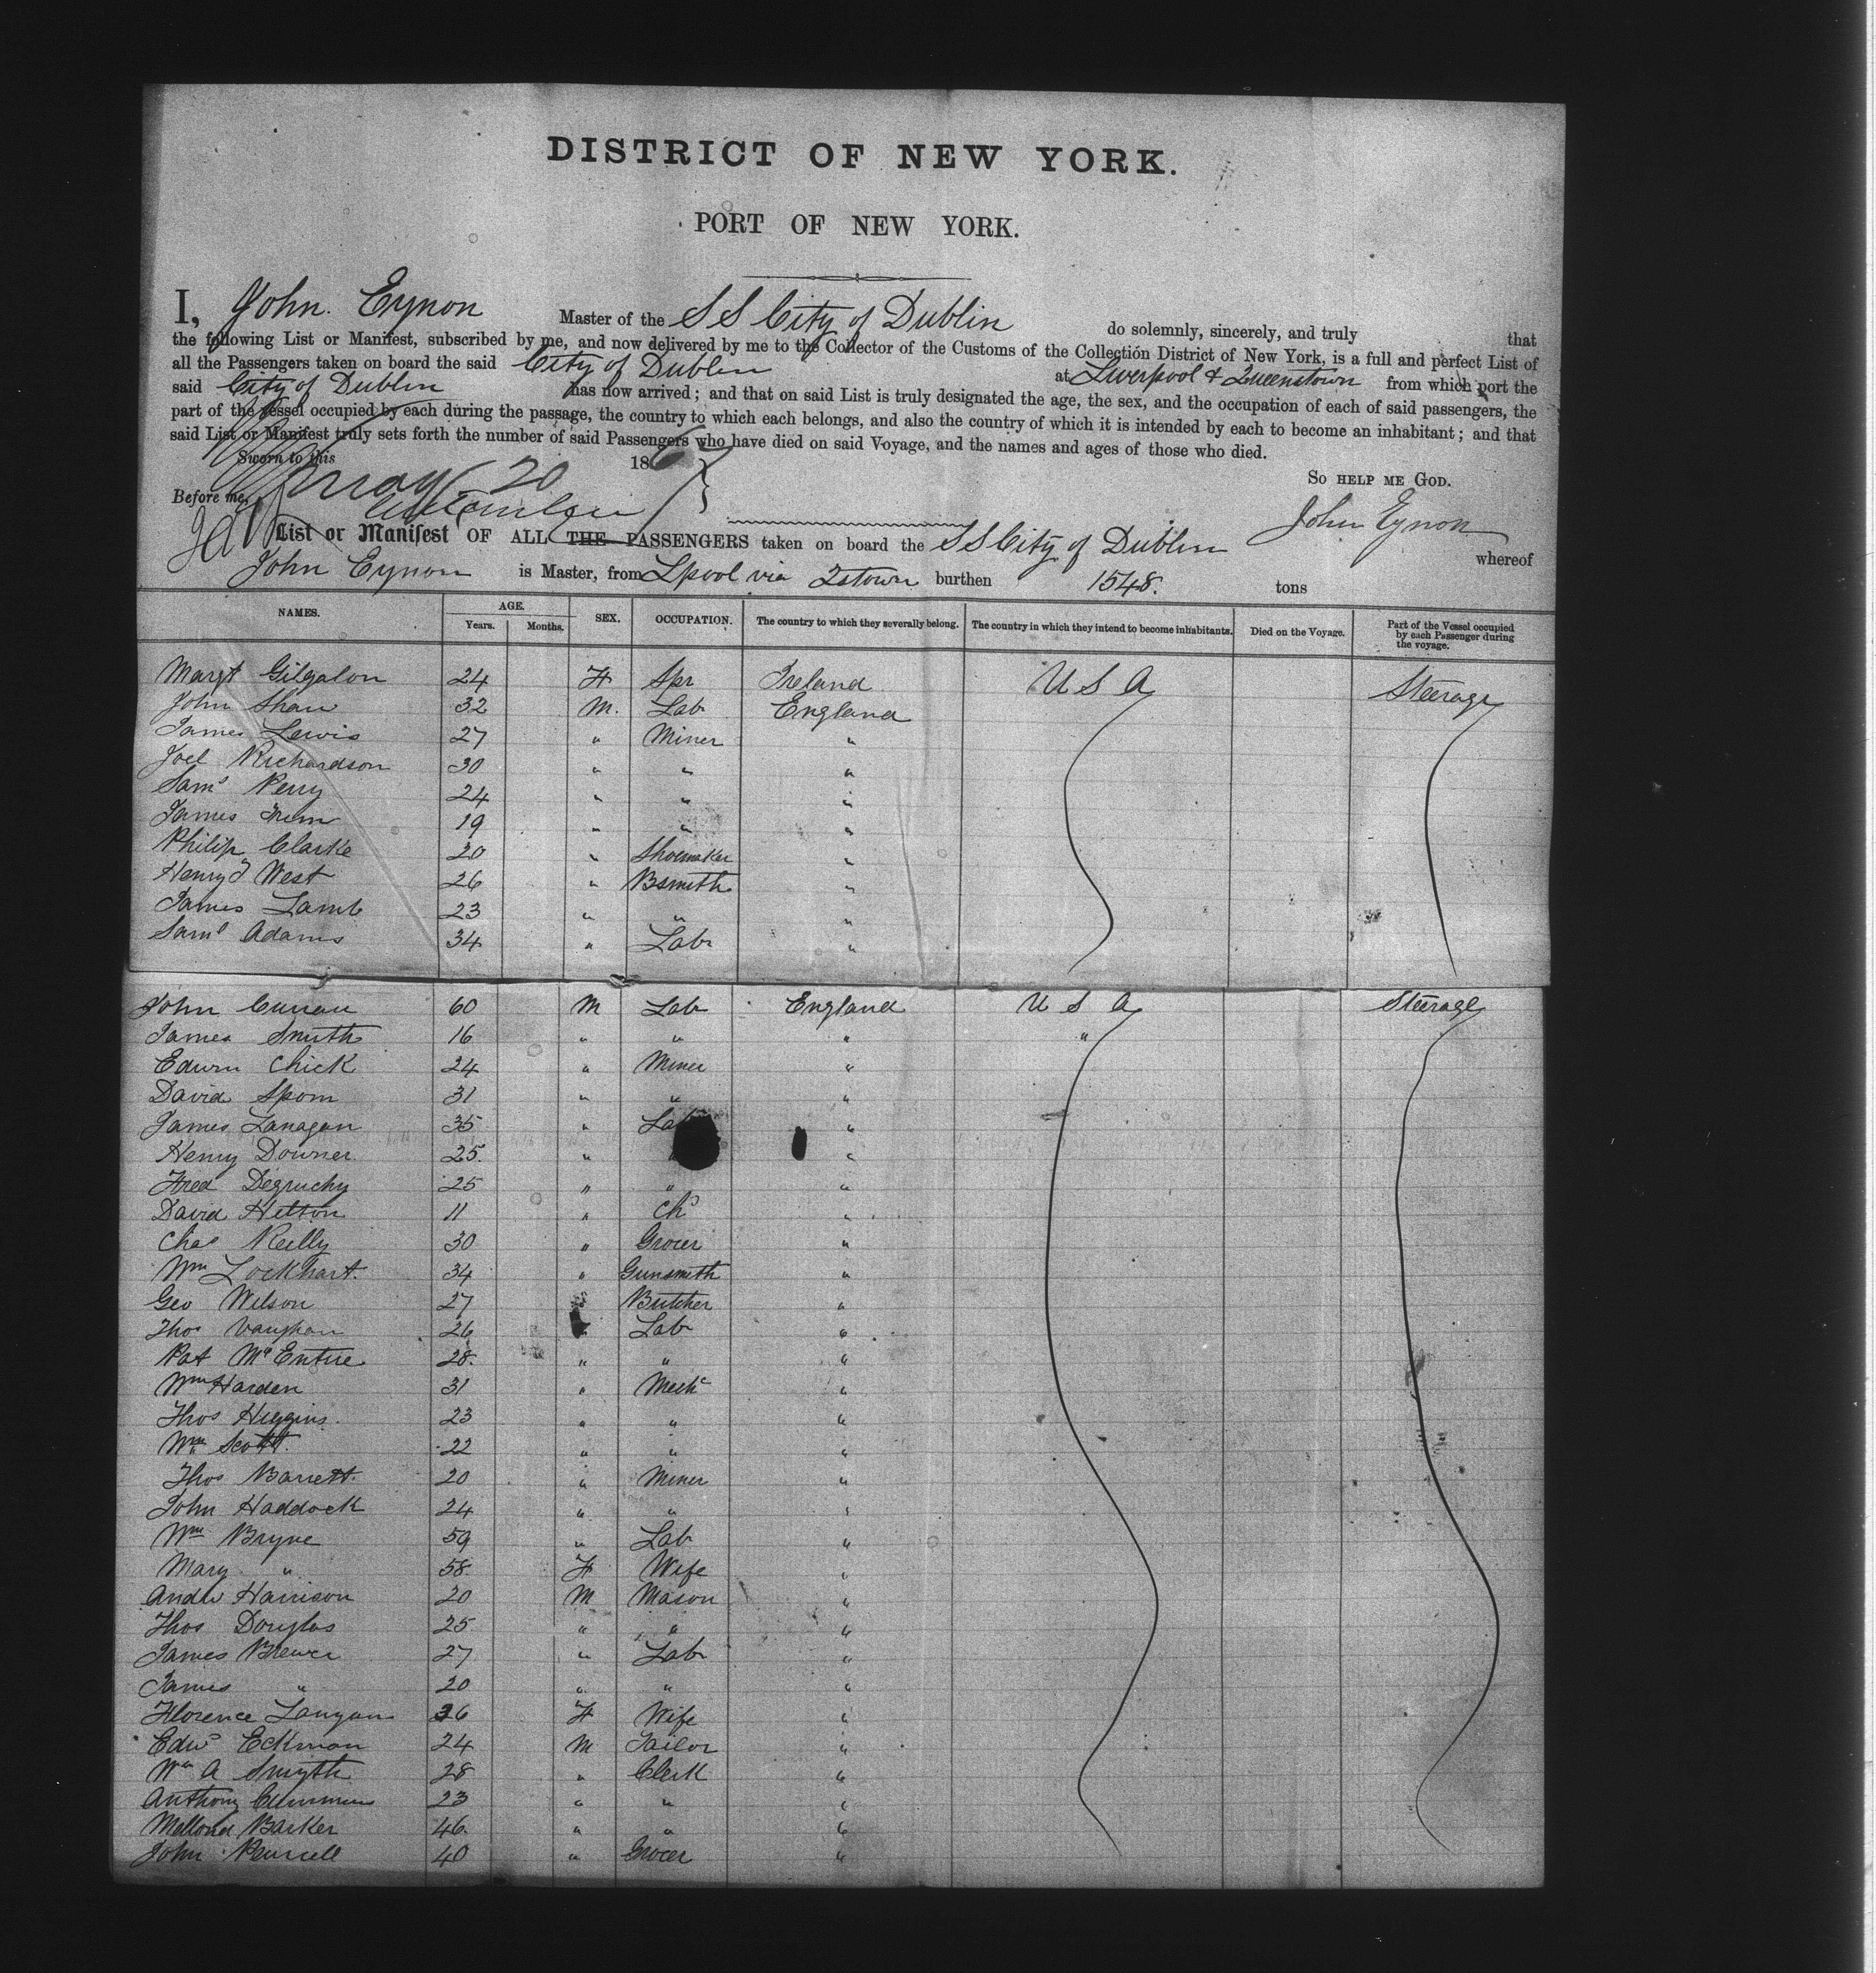 DISTRICT OF NEW YORK.
PORT OF NEW YORK.
I, John. Eynon Master of the S S City of Dublin do solemnly, sincerely, and truly that
the following List or Manifest, subscribed by me, and now delivered by me to the Collector of the Customs of the Collection District of New York, is a full and perfect List of
all the Passengers taken on board the said City of Dublin at Liverpool & Queenstown from which port the
said City of Dublin has now arrived; and that on said List is truly designated the age, the sex, and the occupation of each of said passengers, the
part of the vessel occupied by each during the passage, the country to which each belongs, and also the country of which it is intended by each to become an inhabitant; and that
said List or Manifest truly sets forth the number of said Passengers who have died on said Voyage, and the names and ages of those who died.
Sworn to this May 20 1867
So HELP ME GOD.
Before me, John Eynon
List or Manifest OF ALL THE PASSENGERS taken on board the S S City of Dublin whereof
John Eynon is Master, from Lpool via Qstown burthen 1548. tons
NAMES. AGE. Years. Months. SEX. OCCUPATION. The country to which they severally belong. The country in which they intend to become inhabitants. Died on the Voyage. Part of the Vessel occupied by each Passenger during the voyage.
Margt Gilgalon 24 F Spr Ireland U S A Steerage
John Shaw 32 M. Lab England
James Lewis 27 " Miner "
Joel Richardson 30 " " "
Saml Perry 24 " " "
James 19 " " "
Philip Clarke 20 " Shoemaker "
Henry West 26 " Bsmith "
James Lamb 23 " " "
Saml Adams 34 " Labr "
John Curran 60 M Lab England U S A Steerage
James Smith 16 " " " "
Edwin Chick 24 " Miner "
David Spom 31 " " "
James Lanagan 35 " Lab "
Henry Downer 25. " "
Fred Degruchy 25 " " "
David Hetton 11 " chd "
Chas Reilly 30 " Grocer "
Wm Lockhart. 34 " Gunsmith "
Geo Wilson 27 Butcher "
Thos Vaughan 26 Lab "
Pat McEntire 28. " " "
Wm Harden 31 " Mechc "
Thos Higgins. 23 " " "
Wm Scott. 22 " " "
Thos Barrett. 20 " Miner "
John Haddock 24 " " "
Wm Bryne 59 " Lab "
Mary " 58 F Wife "
Andw Harrison 20 M Mason "
Thos Douglas 25 " " "
James Brewer 27 " Labr "
James " 20 " " "
Florence Langan 26 F Wife "
Edwd Eckman 24 M Tailor "
Wm A Smyth 28 " Clerk "
Anthony Cummins 23 " " "
Barker 46. " " "
John 40 " Grocer "